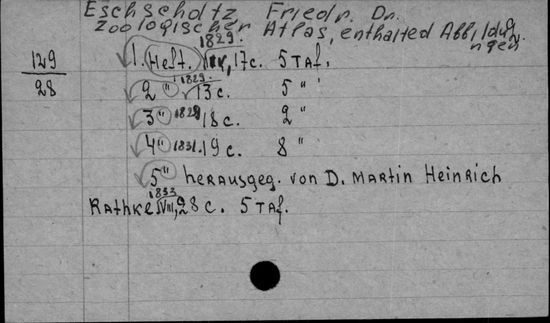 Eschscholtz, Friedr. Dr.
Zoologischer Atlas, enthalted Abbildun
ngen
1829.
129 1. Heft. IV, 17c. 5 Taf.
28 2 " 1829. 13 c. 5 "
3 " 1829 18 c. 2 "
4 " 1831. 19 c. 8 "
5 " herausgeg. von D. Martin Heinrich
1833
Rathke VIII, 28 c. 5 Taf.